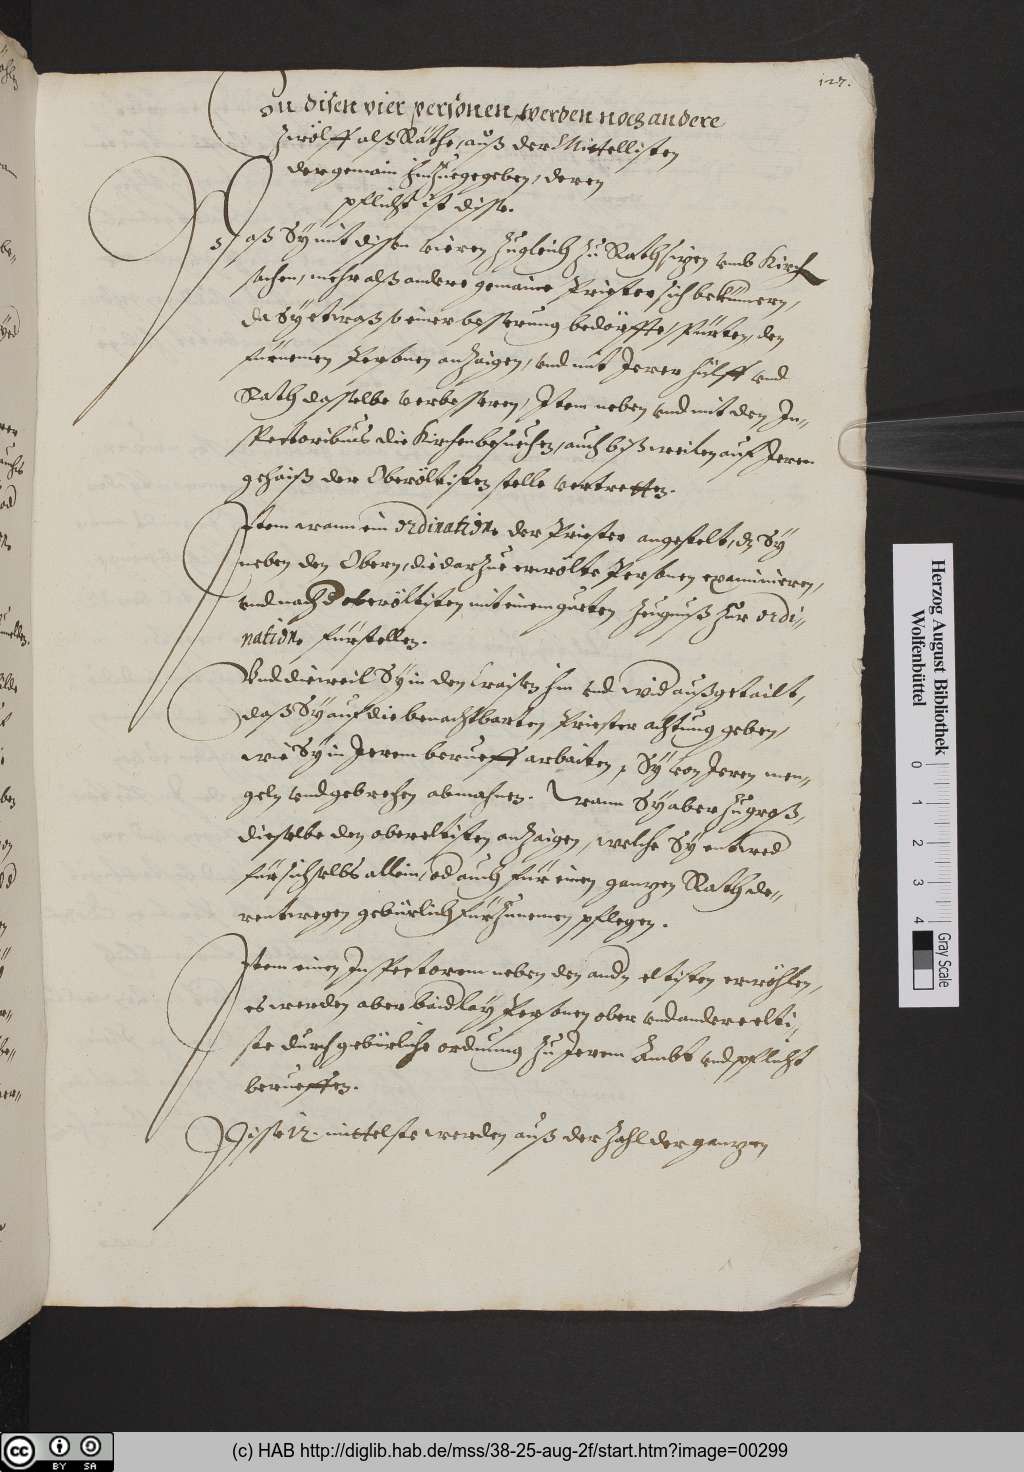 127.
Zu disen vier personen, werden noch andere
zwölff alß Räthe, auß der Mittellisten
der gemain hinzuegegeben, deren
pflicht ist disse.
Daß Sy mit dissen vieren zugleich zu Rath sizen vmb Kirch
sachen, mehr alß andere gemaine Priester sich bekümern,
da Sy etwaß so einer besserung bedörffte, spürten, den
fürnemen Personen anzaigen, vnd mit Jerer hülff vnd
Rath dasselbe verbesseren, Item neben vnd mit den In-
spectoribus die Kirchen besuechen, auch bißweilen auf Jeren
gehaiß der Oberöltisten stelle vertretten.
Item wann ein ordination der Priester angestelt, dz Sy
neben den Obern, die darzue erwölte Personen examinieren,
vnd nach d oberöltisten mit einem gueten zeugnuß zur ordi-
nation fürstellen.
Vnd dieweil Sy in den Craisen hin vnd wid außgetailt,
daß Sy auf die benachtbarten Priester achtung geben,
wie Sy in Jerem berueff arbaiten, Sy von Jeren men-
geln vnd gebrechen abmahnen. Wann Sy aber zu groß,
dieselbe den obereltisten anzaigen, welche Sy entwed
für sich selbs allein, od auch für einen ganzen Rath de-
rentwegen gebürlich fürzunemen pflegen.
Item einen Inspectorem neben den andn eltisten erwöhlen,
es werden aber baid lay Personen ober vnd andere elti-
ste durch gebürliche ordnung zu Jerem Ambt vnd pflicht
berueffen.
Disse 12. mittelste werden auß der zahl der ganzen
Herzog August Bibliothek
Wolfenbüttel
0 1 2 3 4
Gray Scale
cc BY SA
(c) HAB http://diglib.hab.de/mss/38-25-aug-2f/start.htm?image=00299